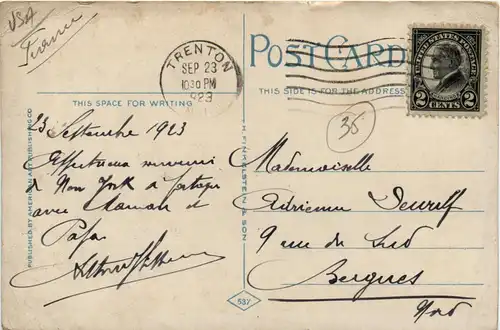 USA
France
TRENTON
SEP 23
10 30 PM
1923
POST CARD
UNITED STATES POSTAGE
2 CENTS 2
THIS SPACE FOR WRITING
THIS SIDE IS FOR THE ADDRESS
35
23 Septembre 1923
Affectueux souvenir
de New York à partager
avec Maman et
Papa
Mademoiselle
Adrienne
9 rue du Sud
Bergues
Nord
PUBLISHED BY AMERICAN ART PUBLISHING CO
H. FINKELSTEIN & SON
537